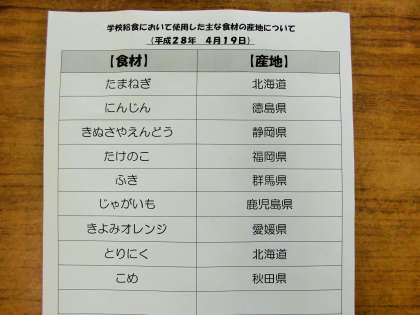 学校給食において使用した主な食材の産地について
（平成２８年　４月１９日）
【食材】　【産地】
たまねぎ　北海道
にんじん　徳島県
きぬさやえんどう　静岡県
たけのこ　福岡県
ふき　群馬県
じゃがいも　鹿児島県
きよみオレンジ　愛媛県
とりにく　北海道
こめ　秋田県